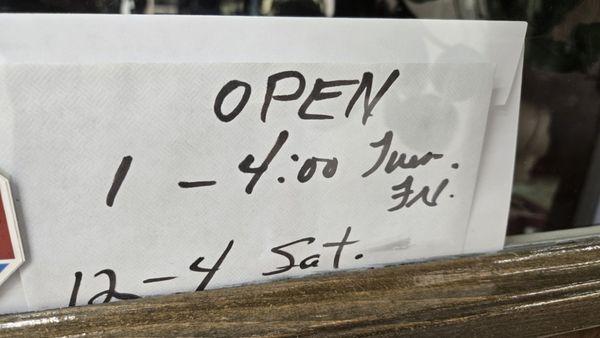 OPEN
1 - 4:00 Tues.
Fri.
12-4 Sat.